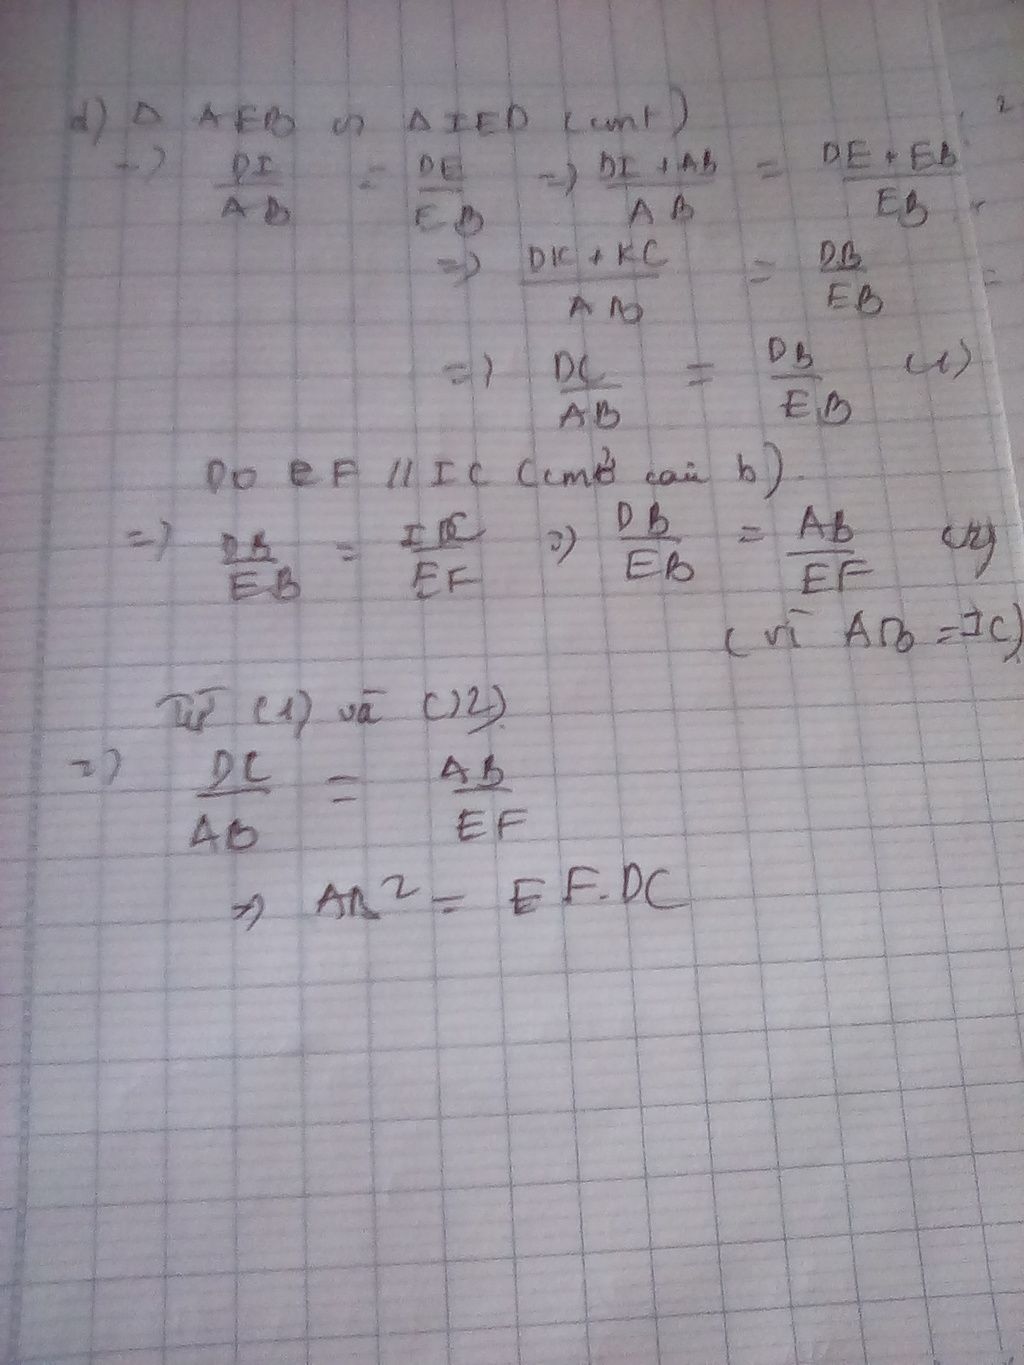 d) Δ AEB ∽ Δ IED (cmt)
=> DI/AB = DE/EB => DI + AB/AB = DE + EB/EB
=> DK + KC/AB = DB/EB
=> DC/AB = DB/EB (1)
Do EF // IC (cmở câu b).
=> DB/EB = IC/EF => DB/EB = AB/EF (2)
(vì AB = IC)
Từ (1) và (2)
=> DC/AB = AB/EF
=> AB² = EF.DC